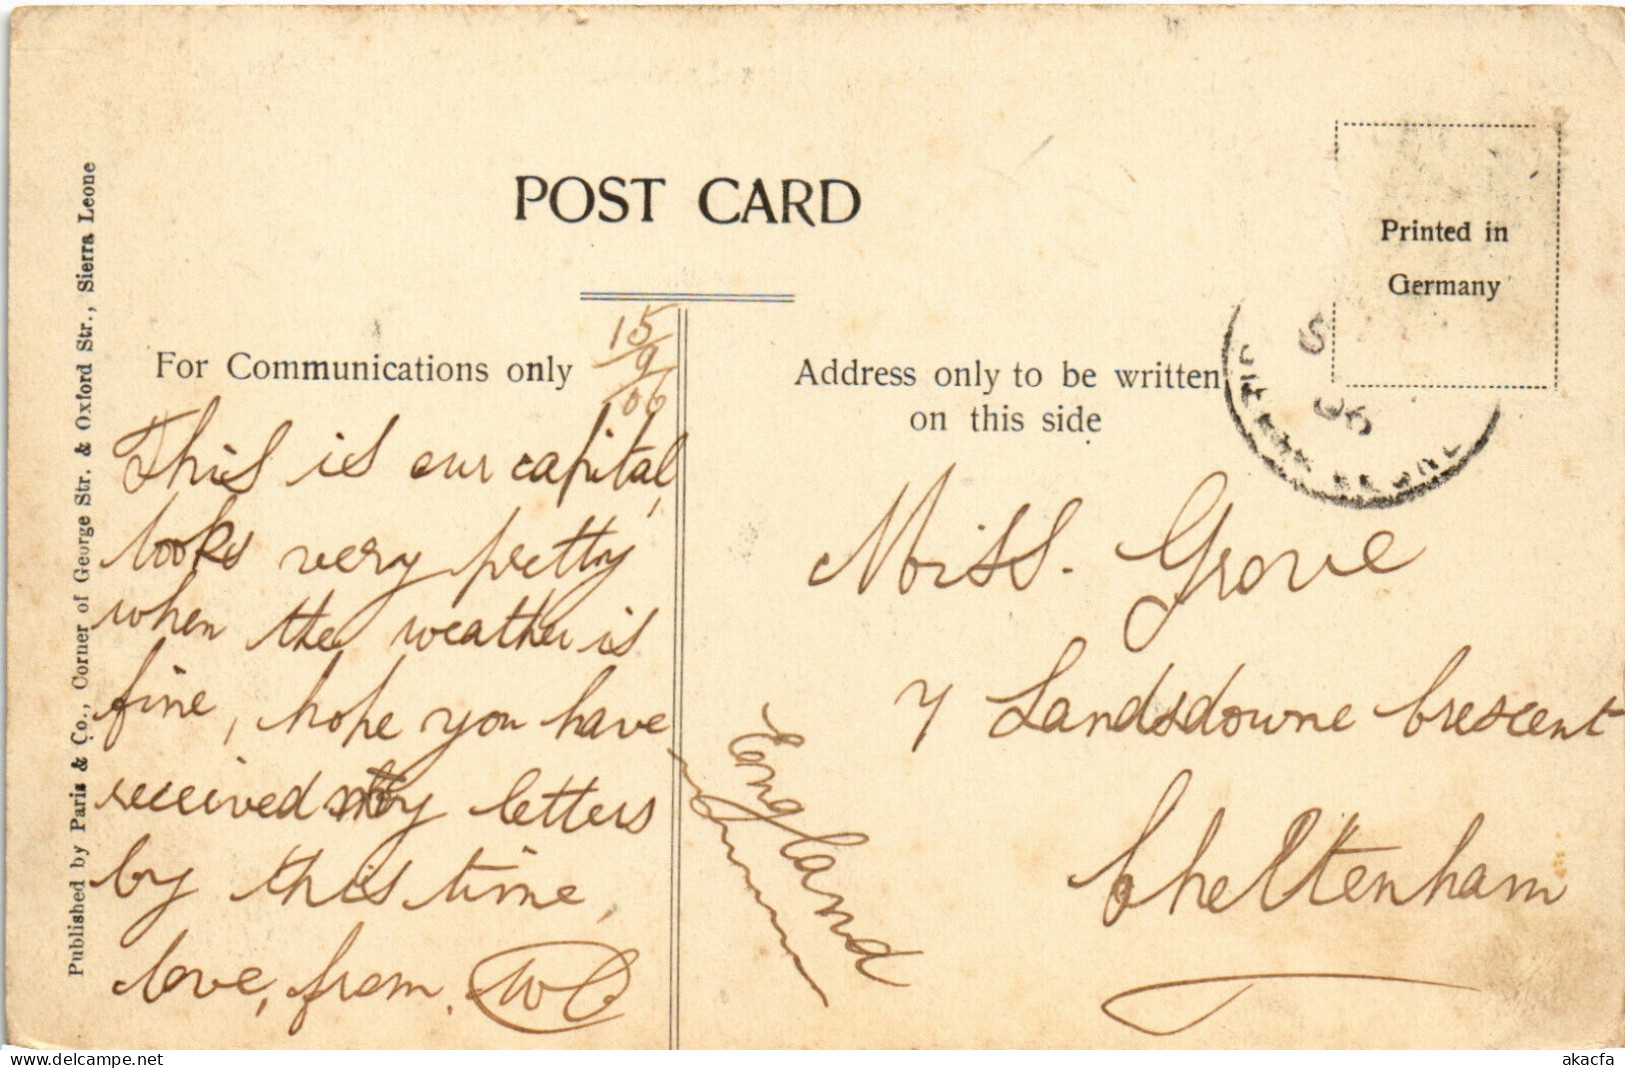 POST CARD
Printed in
Germany
For Communications only
15/9/06
Address only to be written
on this side
This is our capital,
looks very pretty
when the weather is
fine, hope you have
received my letters
by this time,
love, from,
Miss. Grove
7 Landsdowne Crescent
Cheltenham
England
Published by Paris & Co., Corner of George Str. & Oxford Str., Sierra Leone
akacfa